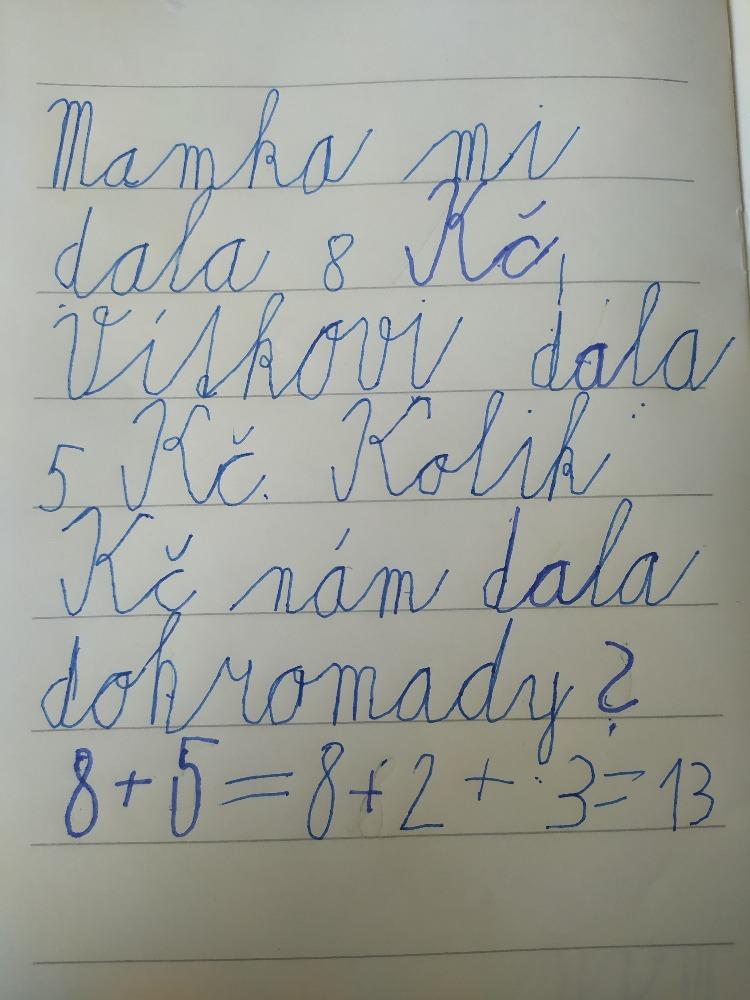 Mamka mi
dala 8 Kč,
Vískovi dala
5 Kč. Kolik
Kč nám dala
dohromady?
8+5=8+2+3=13